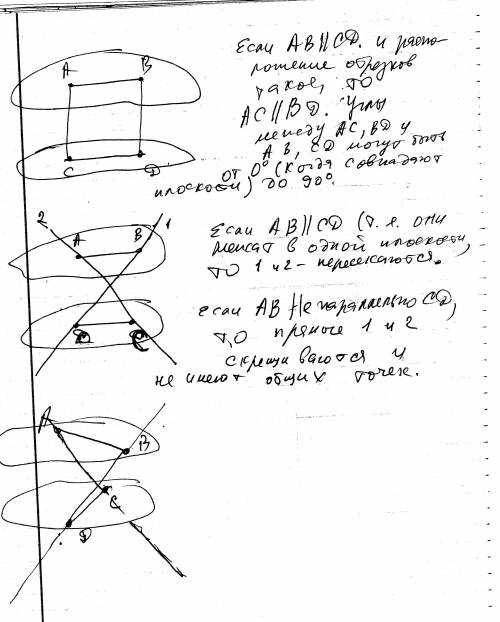 A B
C D
Если AB || CD. и распо-
ложение отрезков
такое, то
AC || BD. Углы
между AC, BD и
AB, CD могут быть
от 0° (когда совпадают
плоскости) до 90°.
2 1
A B
D C
Если AB || CD (т.е. они
лежат в одной плоскости,
то 1 и 2 - пересекаются.
Если AB не параллельно CD,
то прямые 1 и 2
скрещиваются и
не имеют общих точек.
A
B
C
D